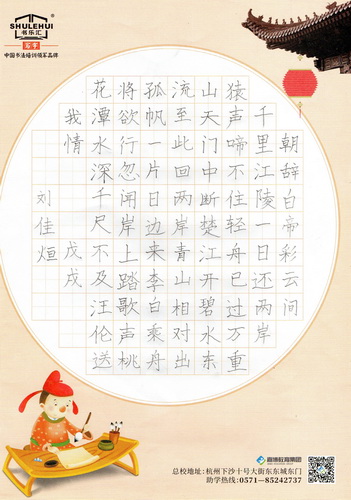 SHULEHUI
书乐汇
写字
中国书法培训领军品牌
朝辞白帝彩云间
千里江陵一日还两岸
猿声啼不住轻舟已过万重
山天门中断楚江开碧水东
流至此回两岸青山相对出
孤帆一片日边来李白乘舟
将欲行忽闻岸上踏歌声桃
花潭水深千尺不及汪伦送
我情
戊戌
刘佳烜
总校地址:杭州下沙十号大街东东城东门
助学热线:0571-85242737